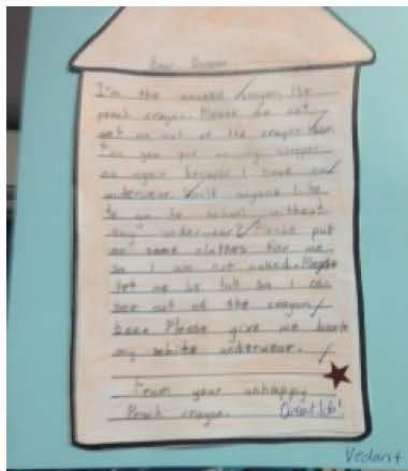 Dear Duncan
I'm the naked crayon, the
peach crayon. Please do not
get me out of the crayon box.
Can you put on my wrapper
on again because I have no
underwear. Would anyone like
to go to school without
any underwear? Please put
on some clothes for me
so I am not naked. Maybe
let me be tall so I can
see out of the crayon
box. Please give me back
my white underwear.
From your unhappy
Peach crayon.
Great Job!
Vedant